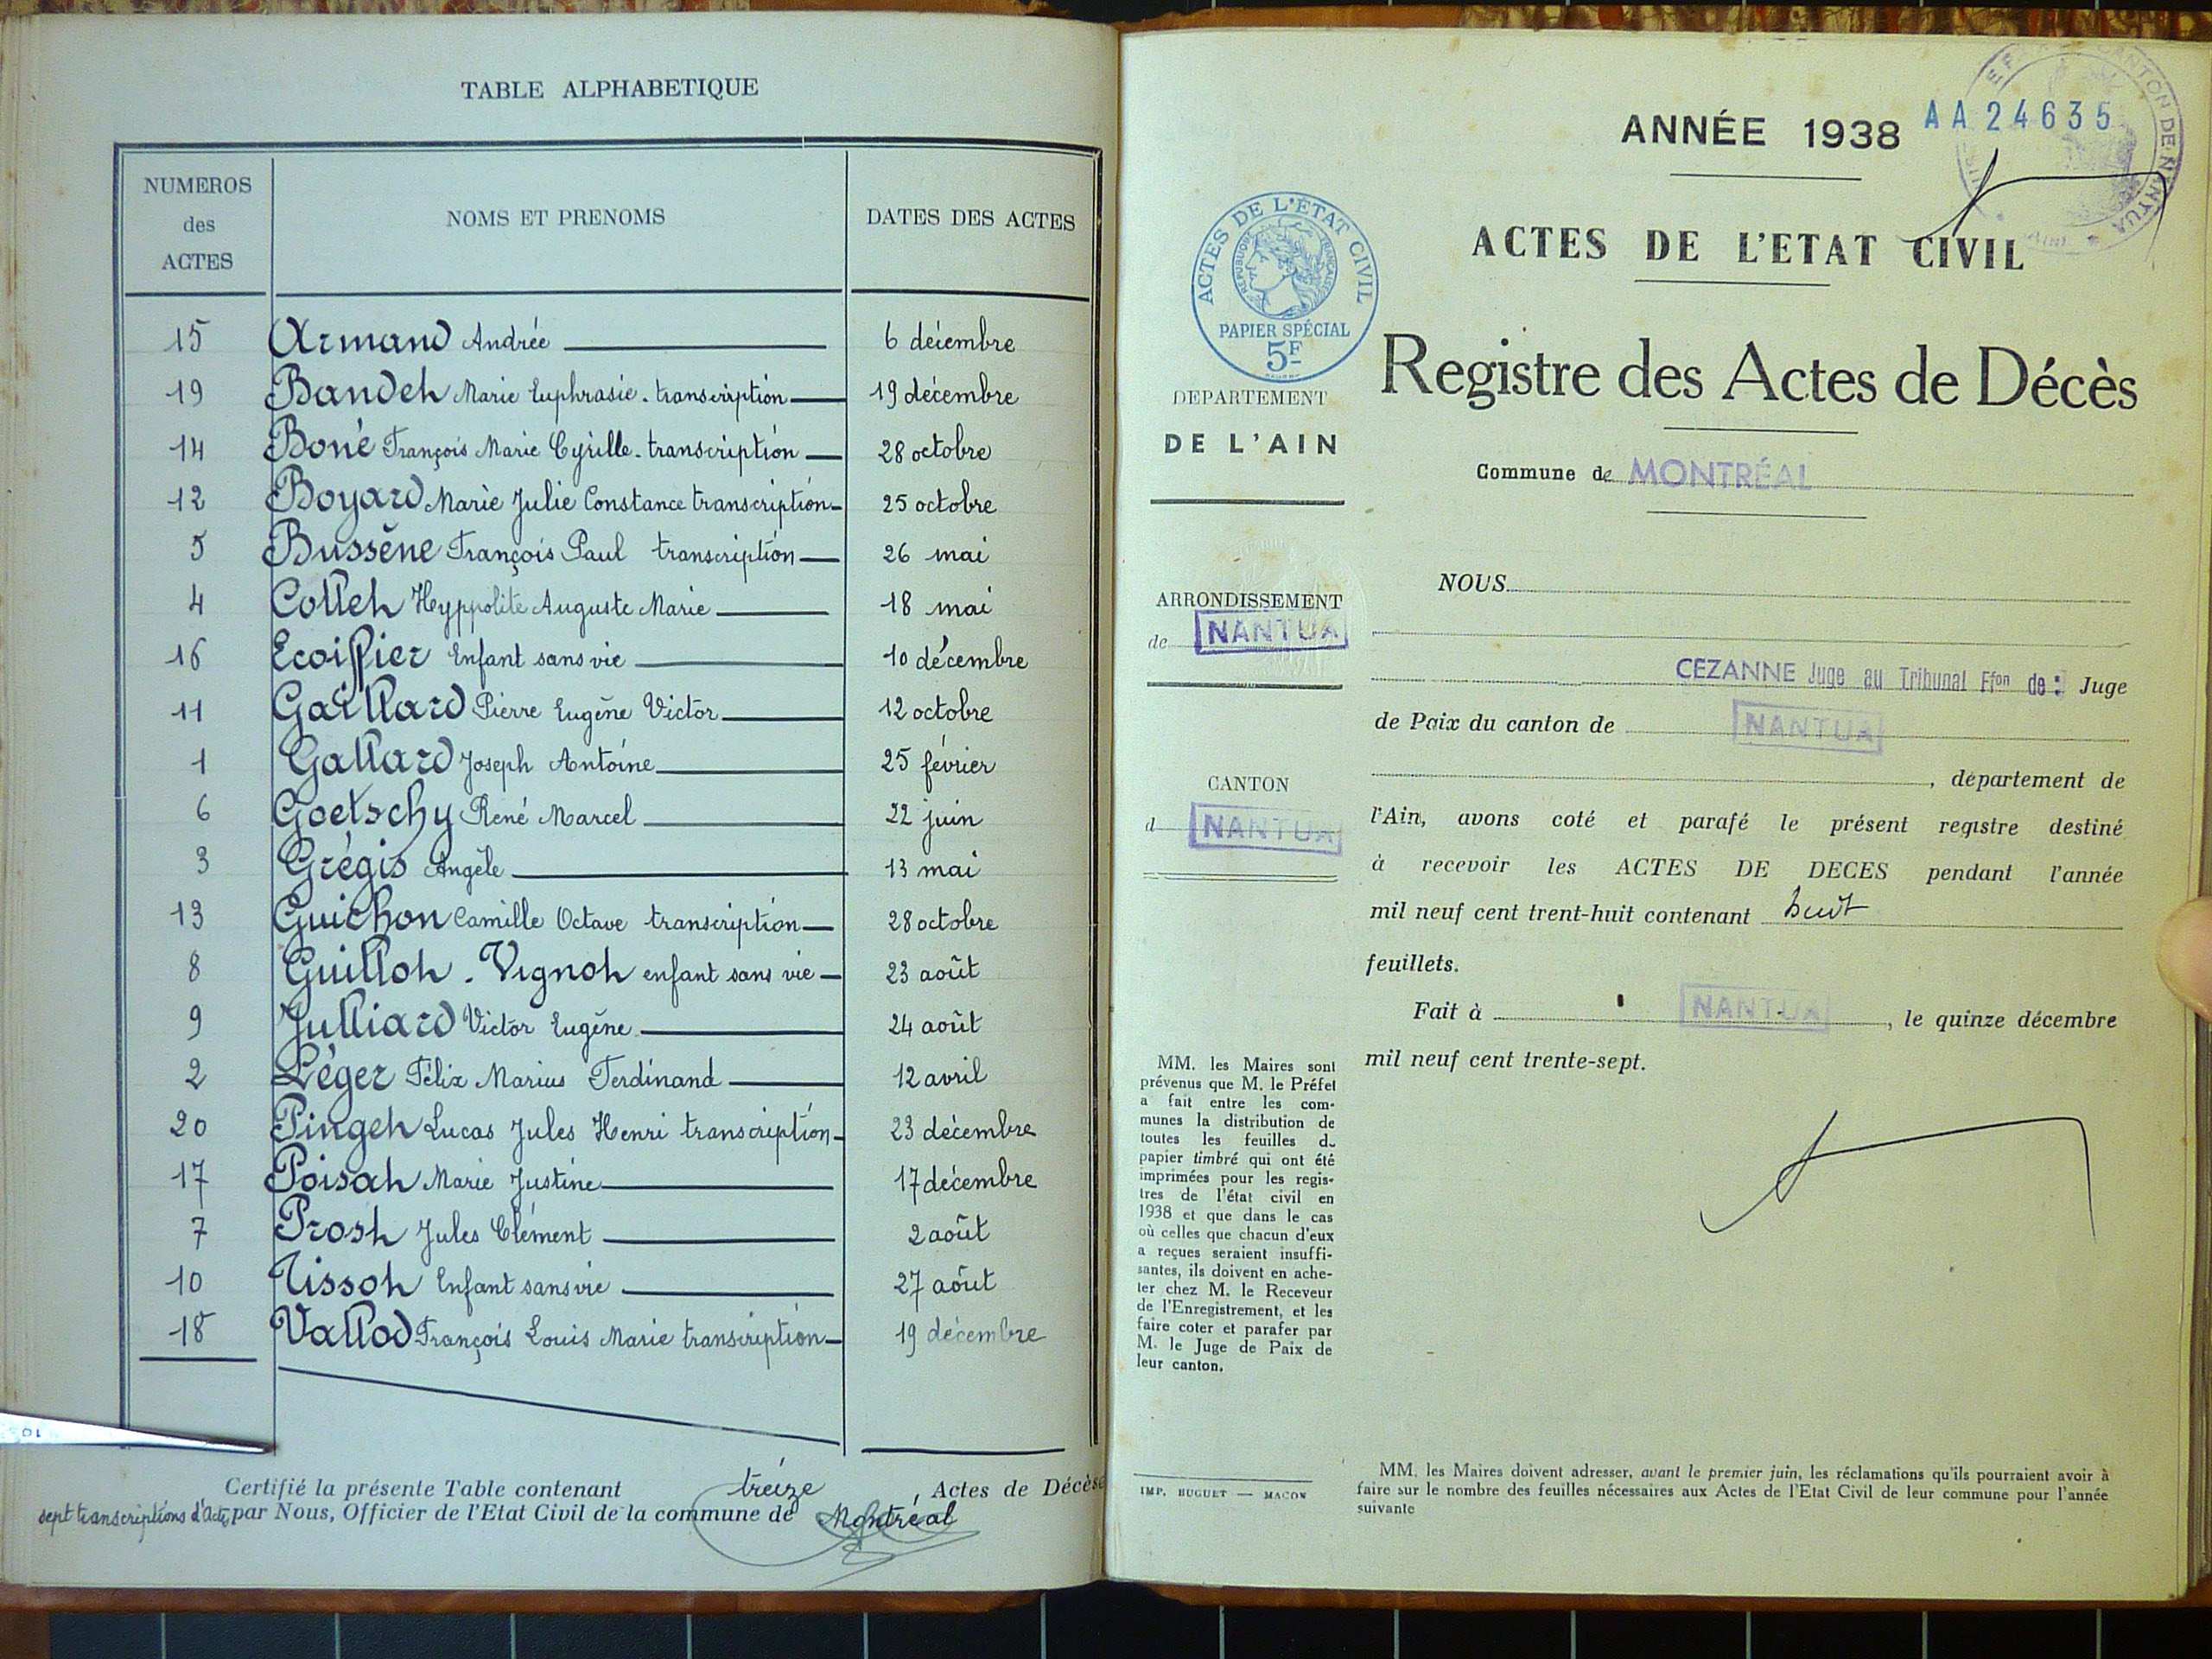 TABLE ALPHABETIQUE
NUMEROS
des
ACTES
NOMS ET PRENOMS
DATES DES ACTES
15 Armand Andrée 6 décembre
19 Bandet Marie Euphrasie. transcription 19 décembre
14 Boné François Marie Cyrille. transcription 28 octobre
12 Boyard Marie Julie Constance transcription 25 octobre
5 Bussène François Paul transcription 26 mai
4 Collet Hyppolite Auguste Marie 18 mai
16 Ecoiffier Enfant sans vie 10 décembre
11 Gaillard Pierre Eugène Victor 12 octobre
1 Gallard Joseph Antoine 25 février
6 Goetschy René Marcel 22 juin
3 Grégis Angèle 13 mai
13 Guichon Camille Octave transcription 28 octobre
8 Guillot. Vignot enfant sans vie 23 août
9 Julliard Victor Eugène 24 août
2 Léger Félix Marius Ferdinand 12 avril
20 Pinget Lucas Jules Henri transcription 23 décembre
17 Poisat Marie Justine 17 décembre
7 Prost Jules Clément 2 août
10 Tissot Enfant sans vie 27 août
18 Vallod François Louis Marie transcription 19 décembre
Certifié la présente Table contenant treize, Actes de Décès
sept transcriptions d'actes par Nous, Officier de l'Etat Civil de la commune de Montréal
ANNÉE 1938
AA 24635
CANTON DE NANTUA
ACTES DE L'ETAT CIVIL
ACTES DE L'ÉTAT CIVIL
REPUBLIQUE FRANÇAISE
PAPIER SPÉCIAL
5F
Registre des Actes de Décès
DEPARTEMENT
DE L'AIN
Commune de MONTRÉAL
ARRONDISSEMENT
de NANTUA
CANTON
d NANTUA
NOUS
CEZANNE Juge au Tribunal Ffon de: Juge
de Paix du canton de NANTUA
, département de
l'Ain, avons coté et parafé le présent registre destiné
à recevoir les ACTES DE DECES pendant l'année
mil neuf cent trent-huit contenant huit
feuillets.
Fait à NANTUA, le quinze décembre
mil neuf cent trente-sept.
MM. les Maires sont
prévenus que M. le Préfet
a fait entre les com-
munes la distribution de
toutes les feuilles du
papier timbré qui ont été
imprimées pour les regis-
tres de l'état civil en
1938 et que dans le cas
où celles que chacun d'eux
a reçues seraient insuffi-
santes, ils doivent en ache-
ter chez M. le Receveur
de l'Enregistrement, et les
faire coter et parafer par
M. le Juge de Paix de
leur canton.
IMP. BUGUET — MACON
MM. les Maires doivent adresser, avant le premier juin, les réclamations qu'ils pourraient avoir à
faire sur le nombre des feuilles nécessaires aux Actes de l'Etat Civil de leur commune pour l'année
suivante